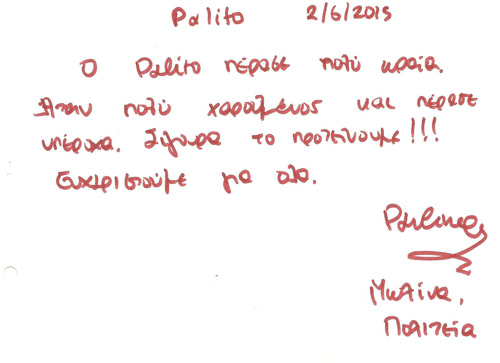 Palito 2/6/2015
Ο Palito πέρασε πολύ ωραία.
Ήταν πολύ χαρούμενος και πέρασε
υπέροχα. Σίγουρα το προτείνουμε!!!
Ευχαριστούμε για όλα.
Μωλίνα,
Πολιτεία